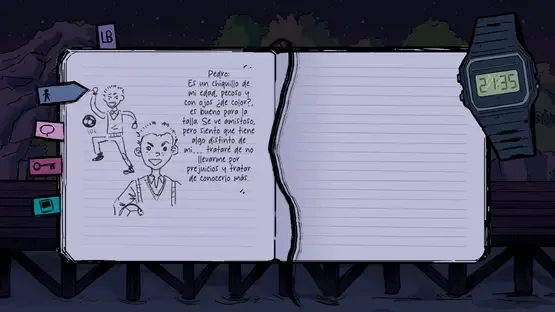 LB
Pedro:
Es un chiquillo de
mi edad, pecoso y
con ojos ¿de color?,
es bueno para la
talla. Se ve amistoso,
pero siento que tiene
algo distinto de
mi... trataré de no
llevarme por
prejuicios y tratar
de conocerlo más.
21:35